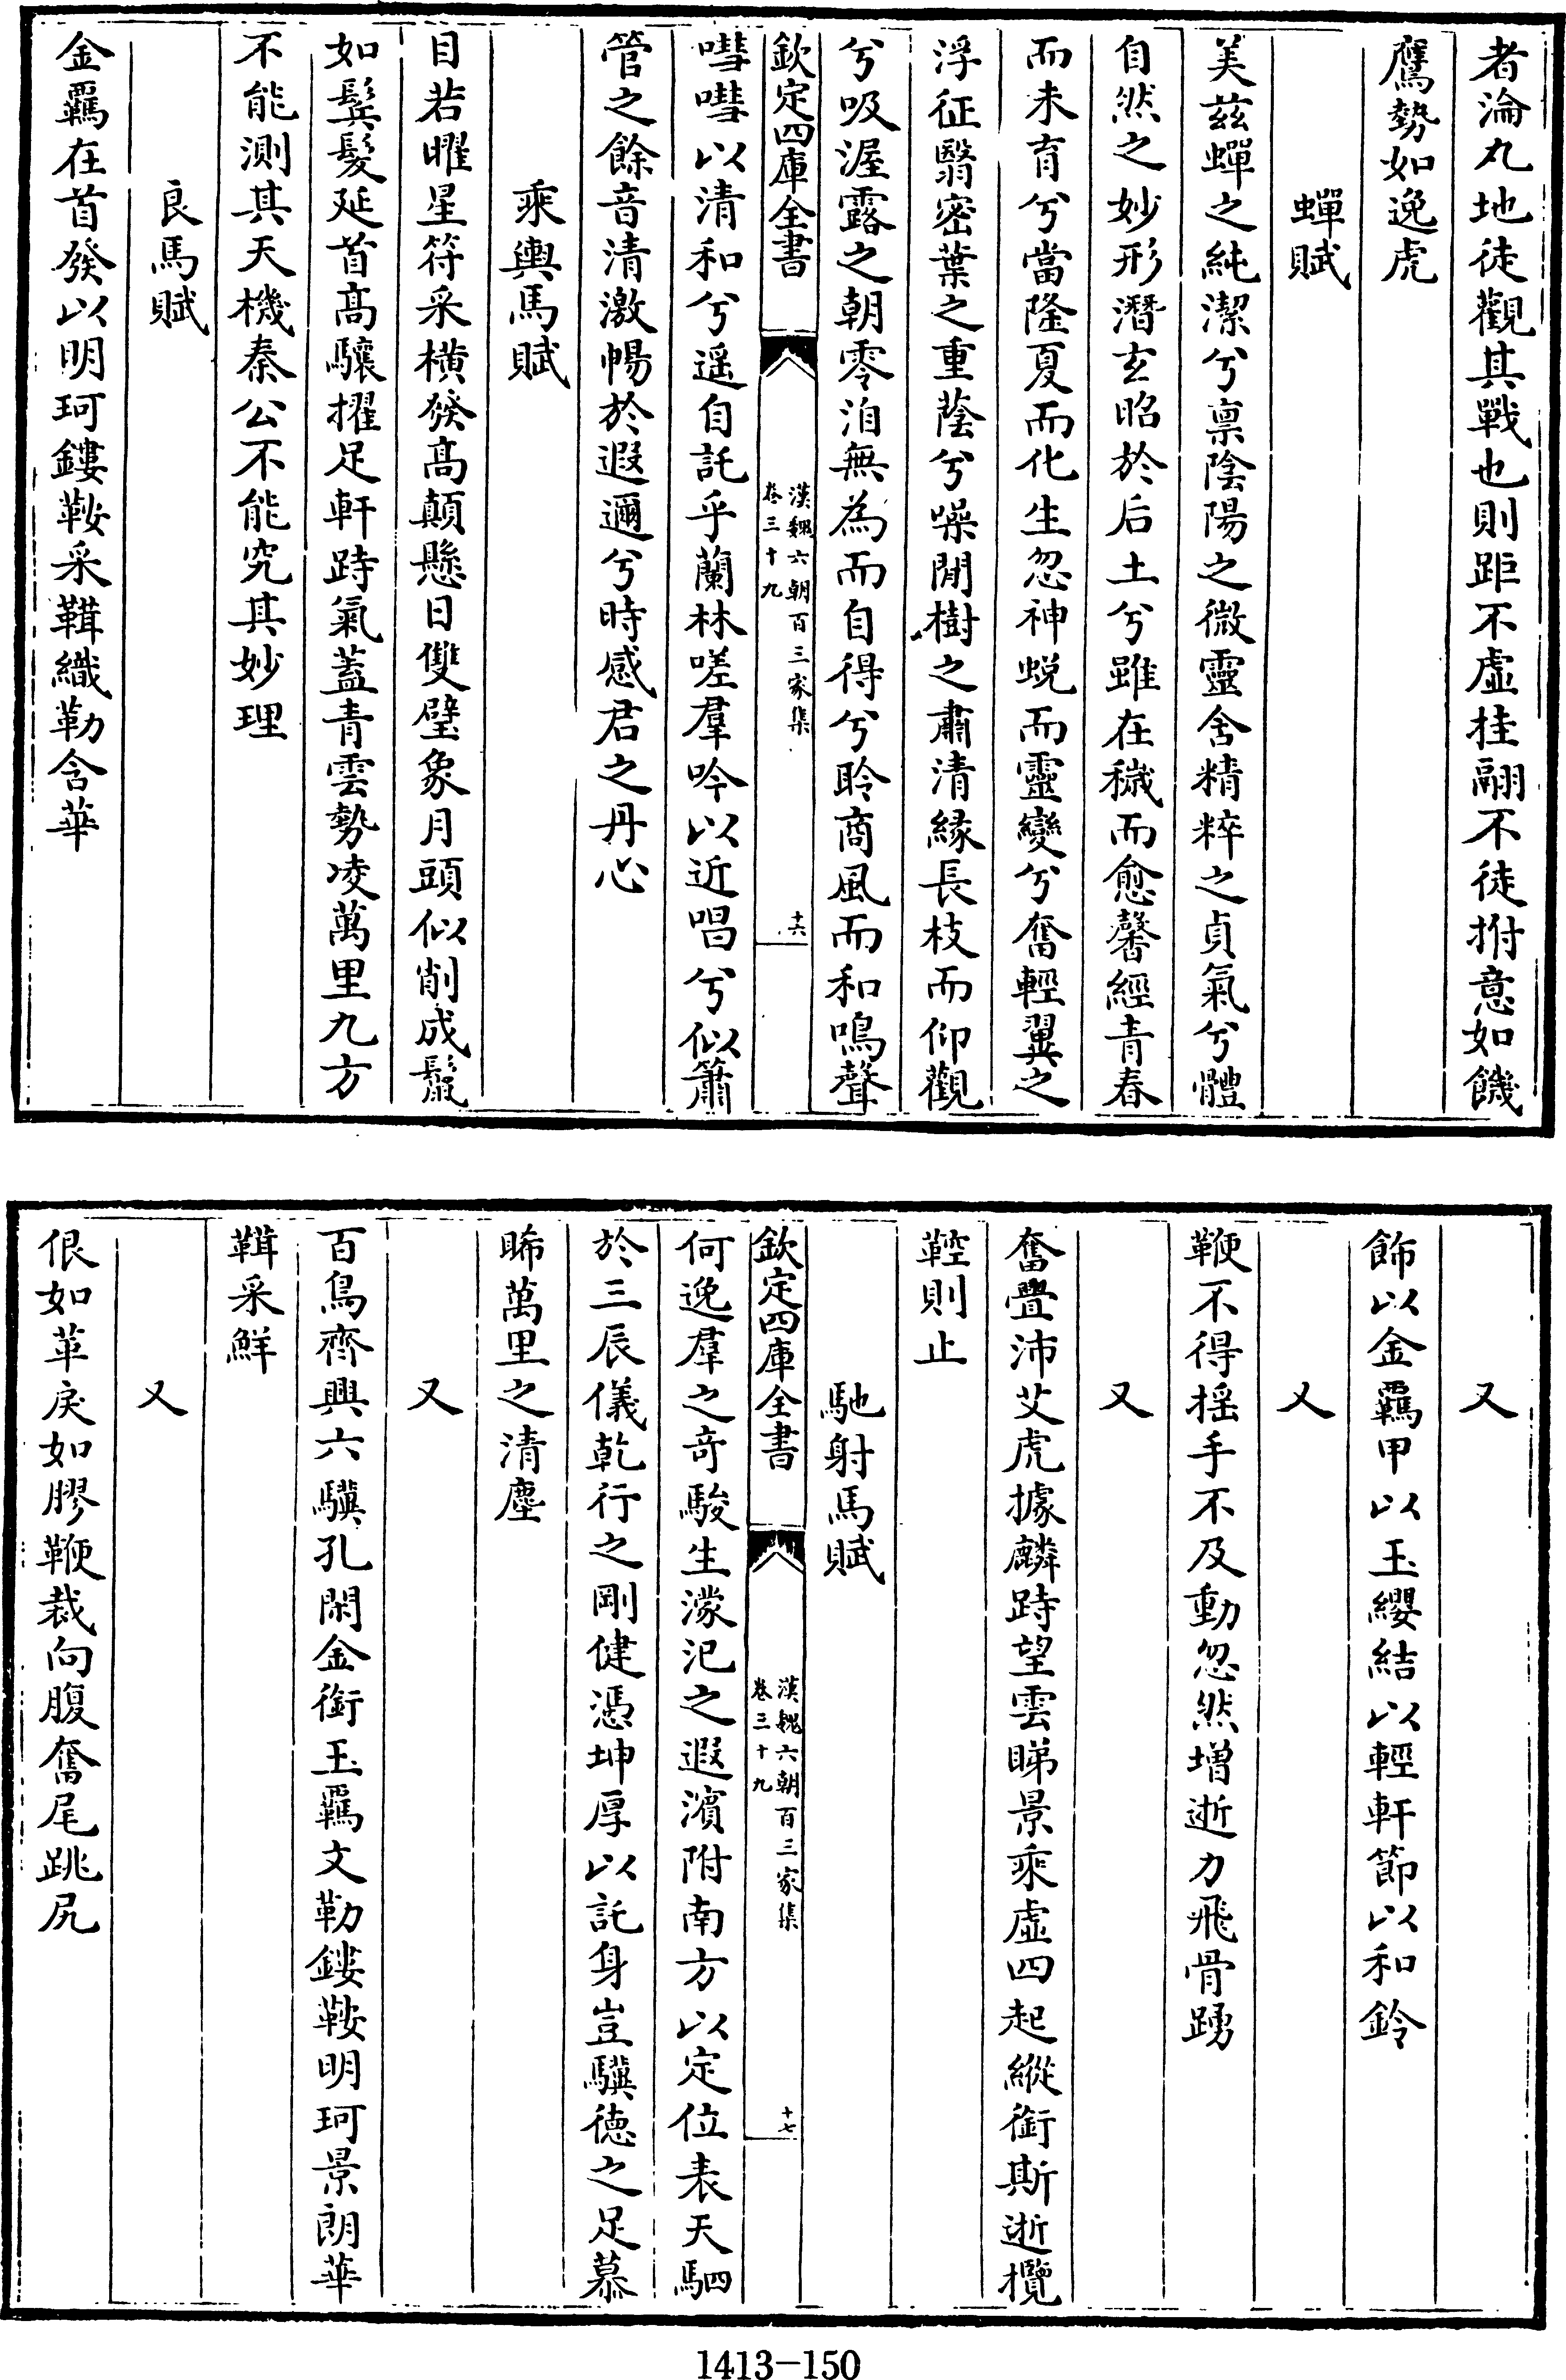 者淪丸地徒觀其戰也則距不虚挂翮不徒拊意如饑
鷹勢如逸虎
蟬賦
美兹蟬之純潔兮禀陰陽之微靈舍精粹之貞氣兮體
自然之妙形潛玄昭於后土兮雖在穢而愈馨經青春
而未育兮當隆夏而化生忽神蜕而靈變兮奮輕翼之
浮征翳密葉之重蔭兮噪閒樹之肅清縁長枝而仰觀
兮吸渥露之朝零洎無為而自得兮聆商風而和鳴聲
欽定四庫全書
漢魏六朝百三家集
卷三十九
十六
嘒嘒以清和兮遥自託乎蘭林嗟羣吟以近唱兮似簫
管之餘音清激暢於遐邇兮時感君之丹心
乘輿馬賦
目若曜星符采横發髙顛懸日雙璧象月頭似削成鬛
如髸髮延首髙驤擢足軒跱氣蓋青雲勢凌萬里九方
不能測其天機秦公不能究其妙理
良馬賦
金羈在首發以明珂鏤鞍采鞿織勒含華
又
飾以金羈甲以玉纓結以輕軒節以和鈴
又
鞭不得揺手不及動忽然增逝力飛骨踴
又
奮疊沛艾虎據麟跱望雲睇景乘虚四起縱銜斯逝攬
鞚則止
馳射馬賦
欽定四庫全書
漢魏六朝百三家集
卷三十九
十七
何逸羣之竒駿生濛汜之遐濱附南方以定位表天駟
於三辰儀乾行之剛健憑坤厚以託身豈驥徳之足慕
睎萬里之清塵
又
百鳥齊興六驥孔閑金銜玉羈文勒鏤鞍明珂景朗華
鞿采鮮
又
佷如革戾如膠鞭裁向腹奮尾跳尻
1413-150